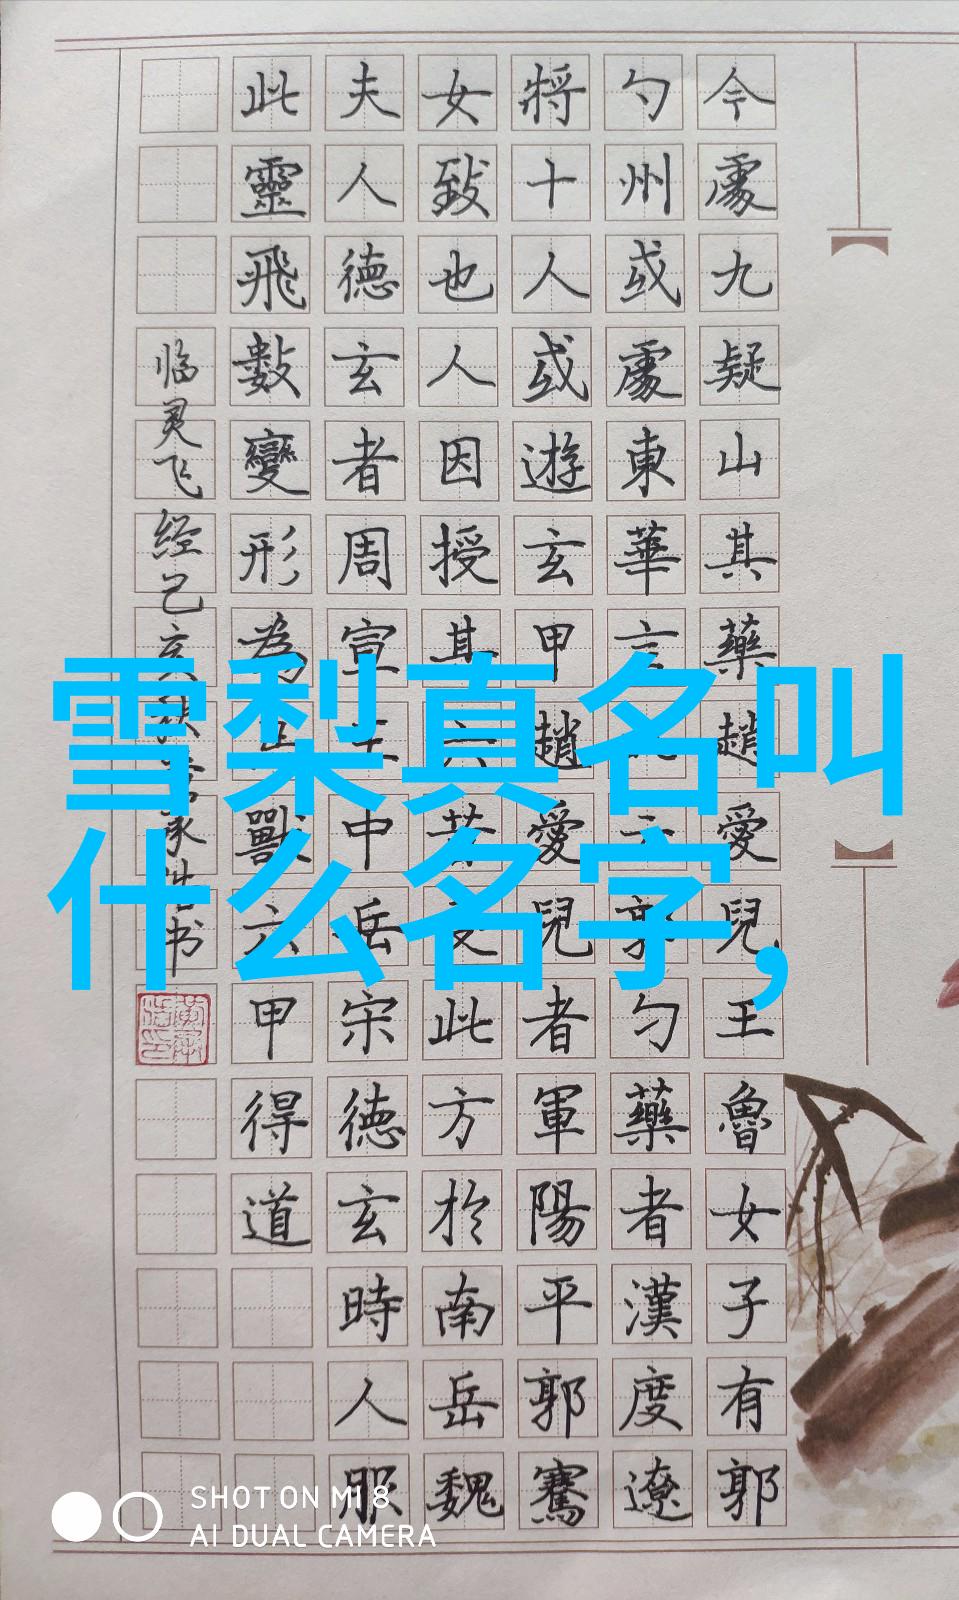 今處九疑山其藥趙愛兒王魯女子有郭
勺州或處東華郭勺藥者漢度遼
將十人或遊玄甲趙愛兒者軍陽平郭騫
女致也人因授其六此方於南岳魏
夫人德玄者周宣王中岳宋德玄時人服
此靈飛數變形為獸六甲得道
临灵飞经己亥秋书
雪梨真名叫
什么名字,
SHOT ON MI 8
AI DUAL CAMERA